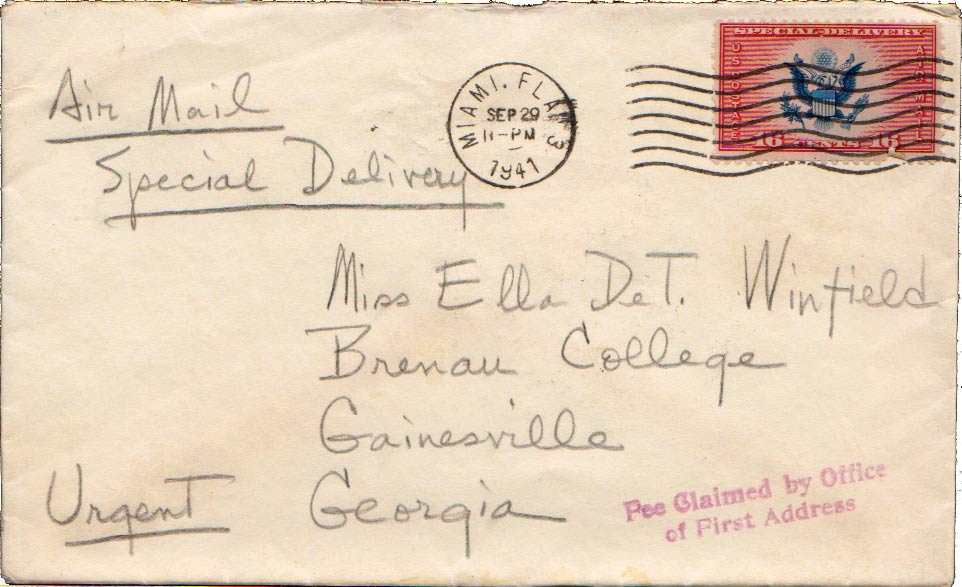 Air Mail
Special Delivery
MIAMI, FLA. 3
SEP 29
11-PM
1941
SPECIAL DELIVERY
U S POSTAGE
AIR MAIL
16 CENTS 16
Miss Ella DeT. Winfield
Brenau College
Gainesville
Georgia
Urgent
Fee Claimed by Office
of First Address